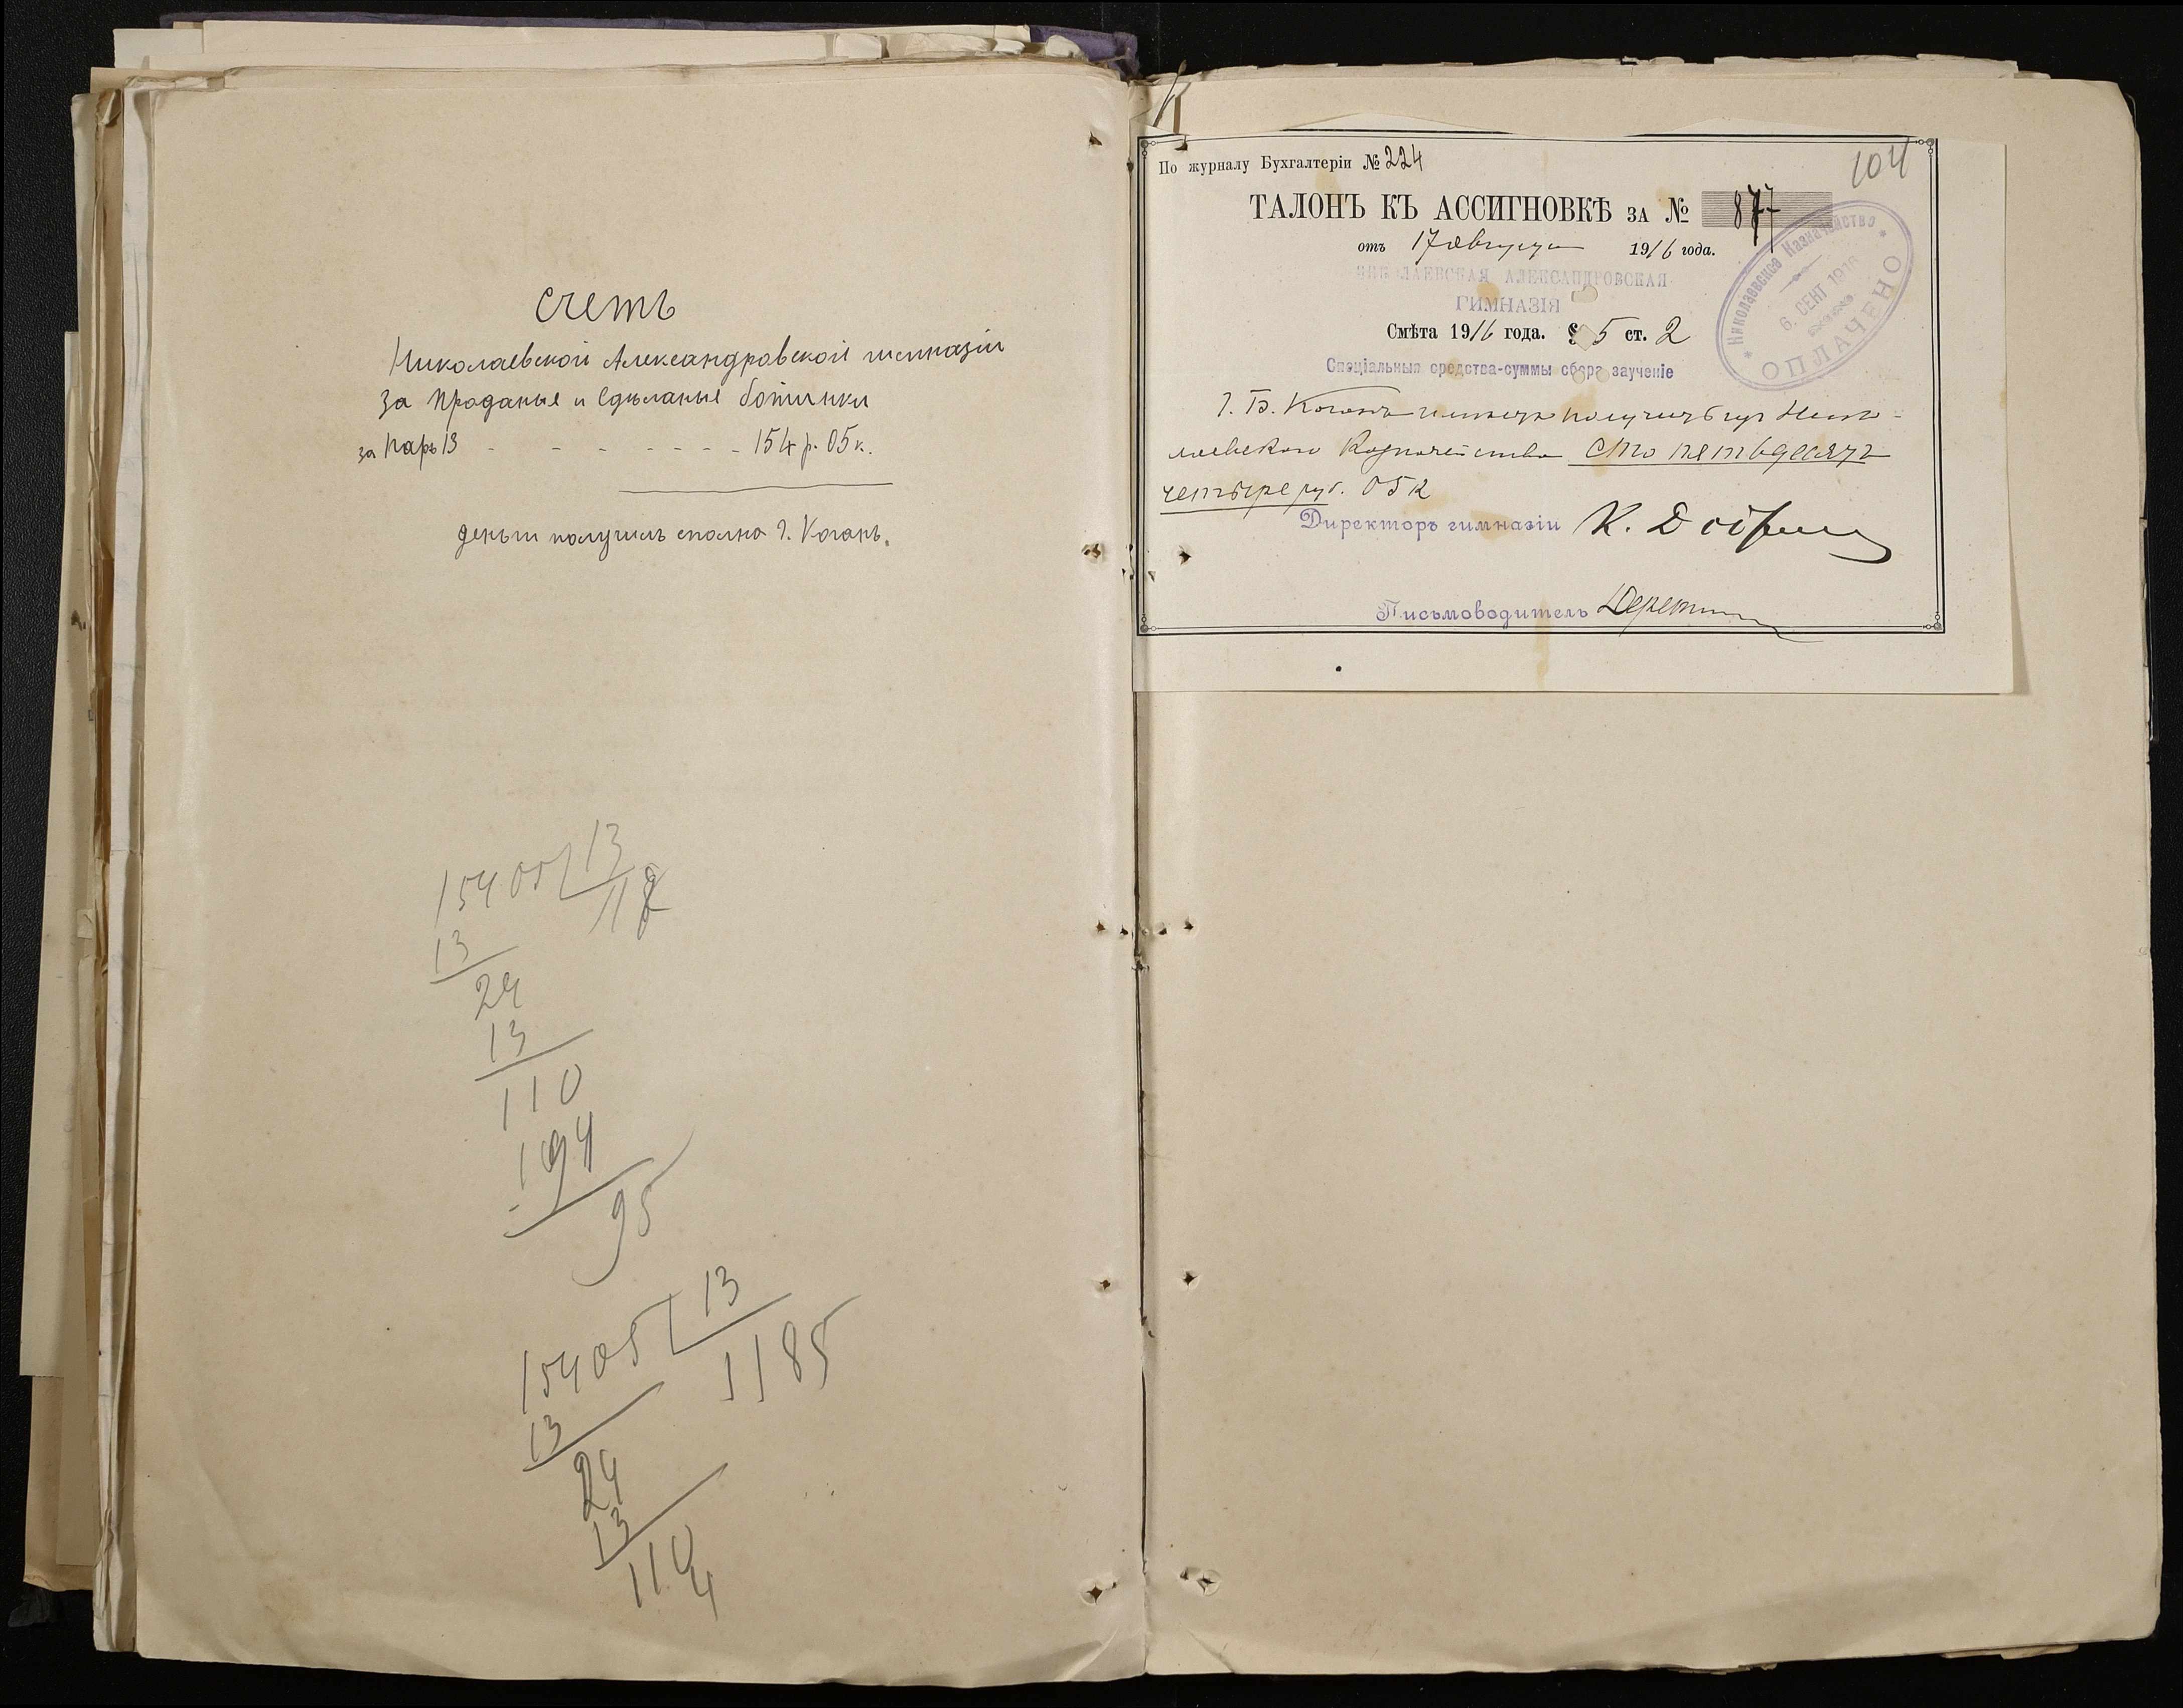 Счетъ
Николаевской Александровской гимназіи
за проданые и сдѣланые ботинки
за паръ 13 - - - - - - - 154 р. 05 к.
деньги получилъ сполна I. Коганъ.
15405 13
118
13
24
13
110
104
95
15405 13
1185
13
24
13
110
4
104
По журналу Бухгалтеріи № 224
ТАЛОНЪ КЪ АССИГНОВКѢ ЗА № 877
отъ 17 августа 1916 года.
НИКОЛАЕВСКАЯ АЛЕКСАНДРОВСКАЯ
ГИМНАЗІЯ
Смѣта 1916 года. § 5 ст. 2
Спеціальныя средства-суммы сбора заученіе
Николаевское Казначейство
6. СЕНТ 1916
ОПЛАЧЕНО
I. Б. Коганъ имѣетъ получить изъ Нико-
лаевскаго Казначейства сто пятьдесятъ
четыре руб. 05 к
Директоръ гимназіи К.
Письмоводитель